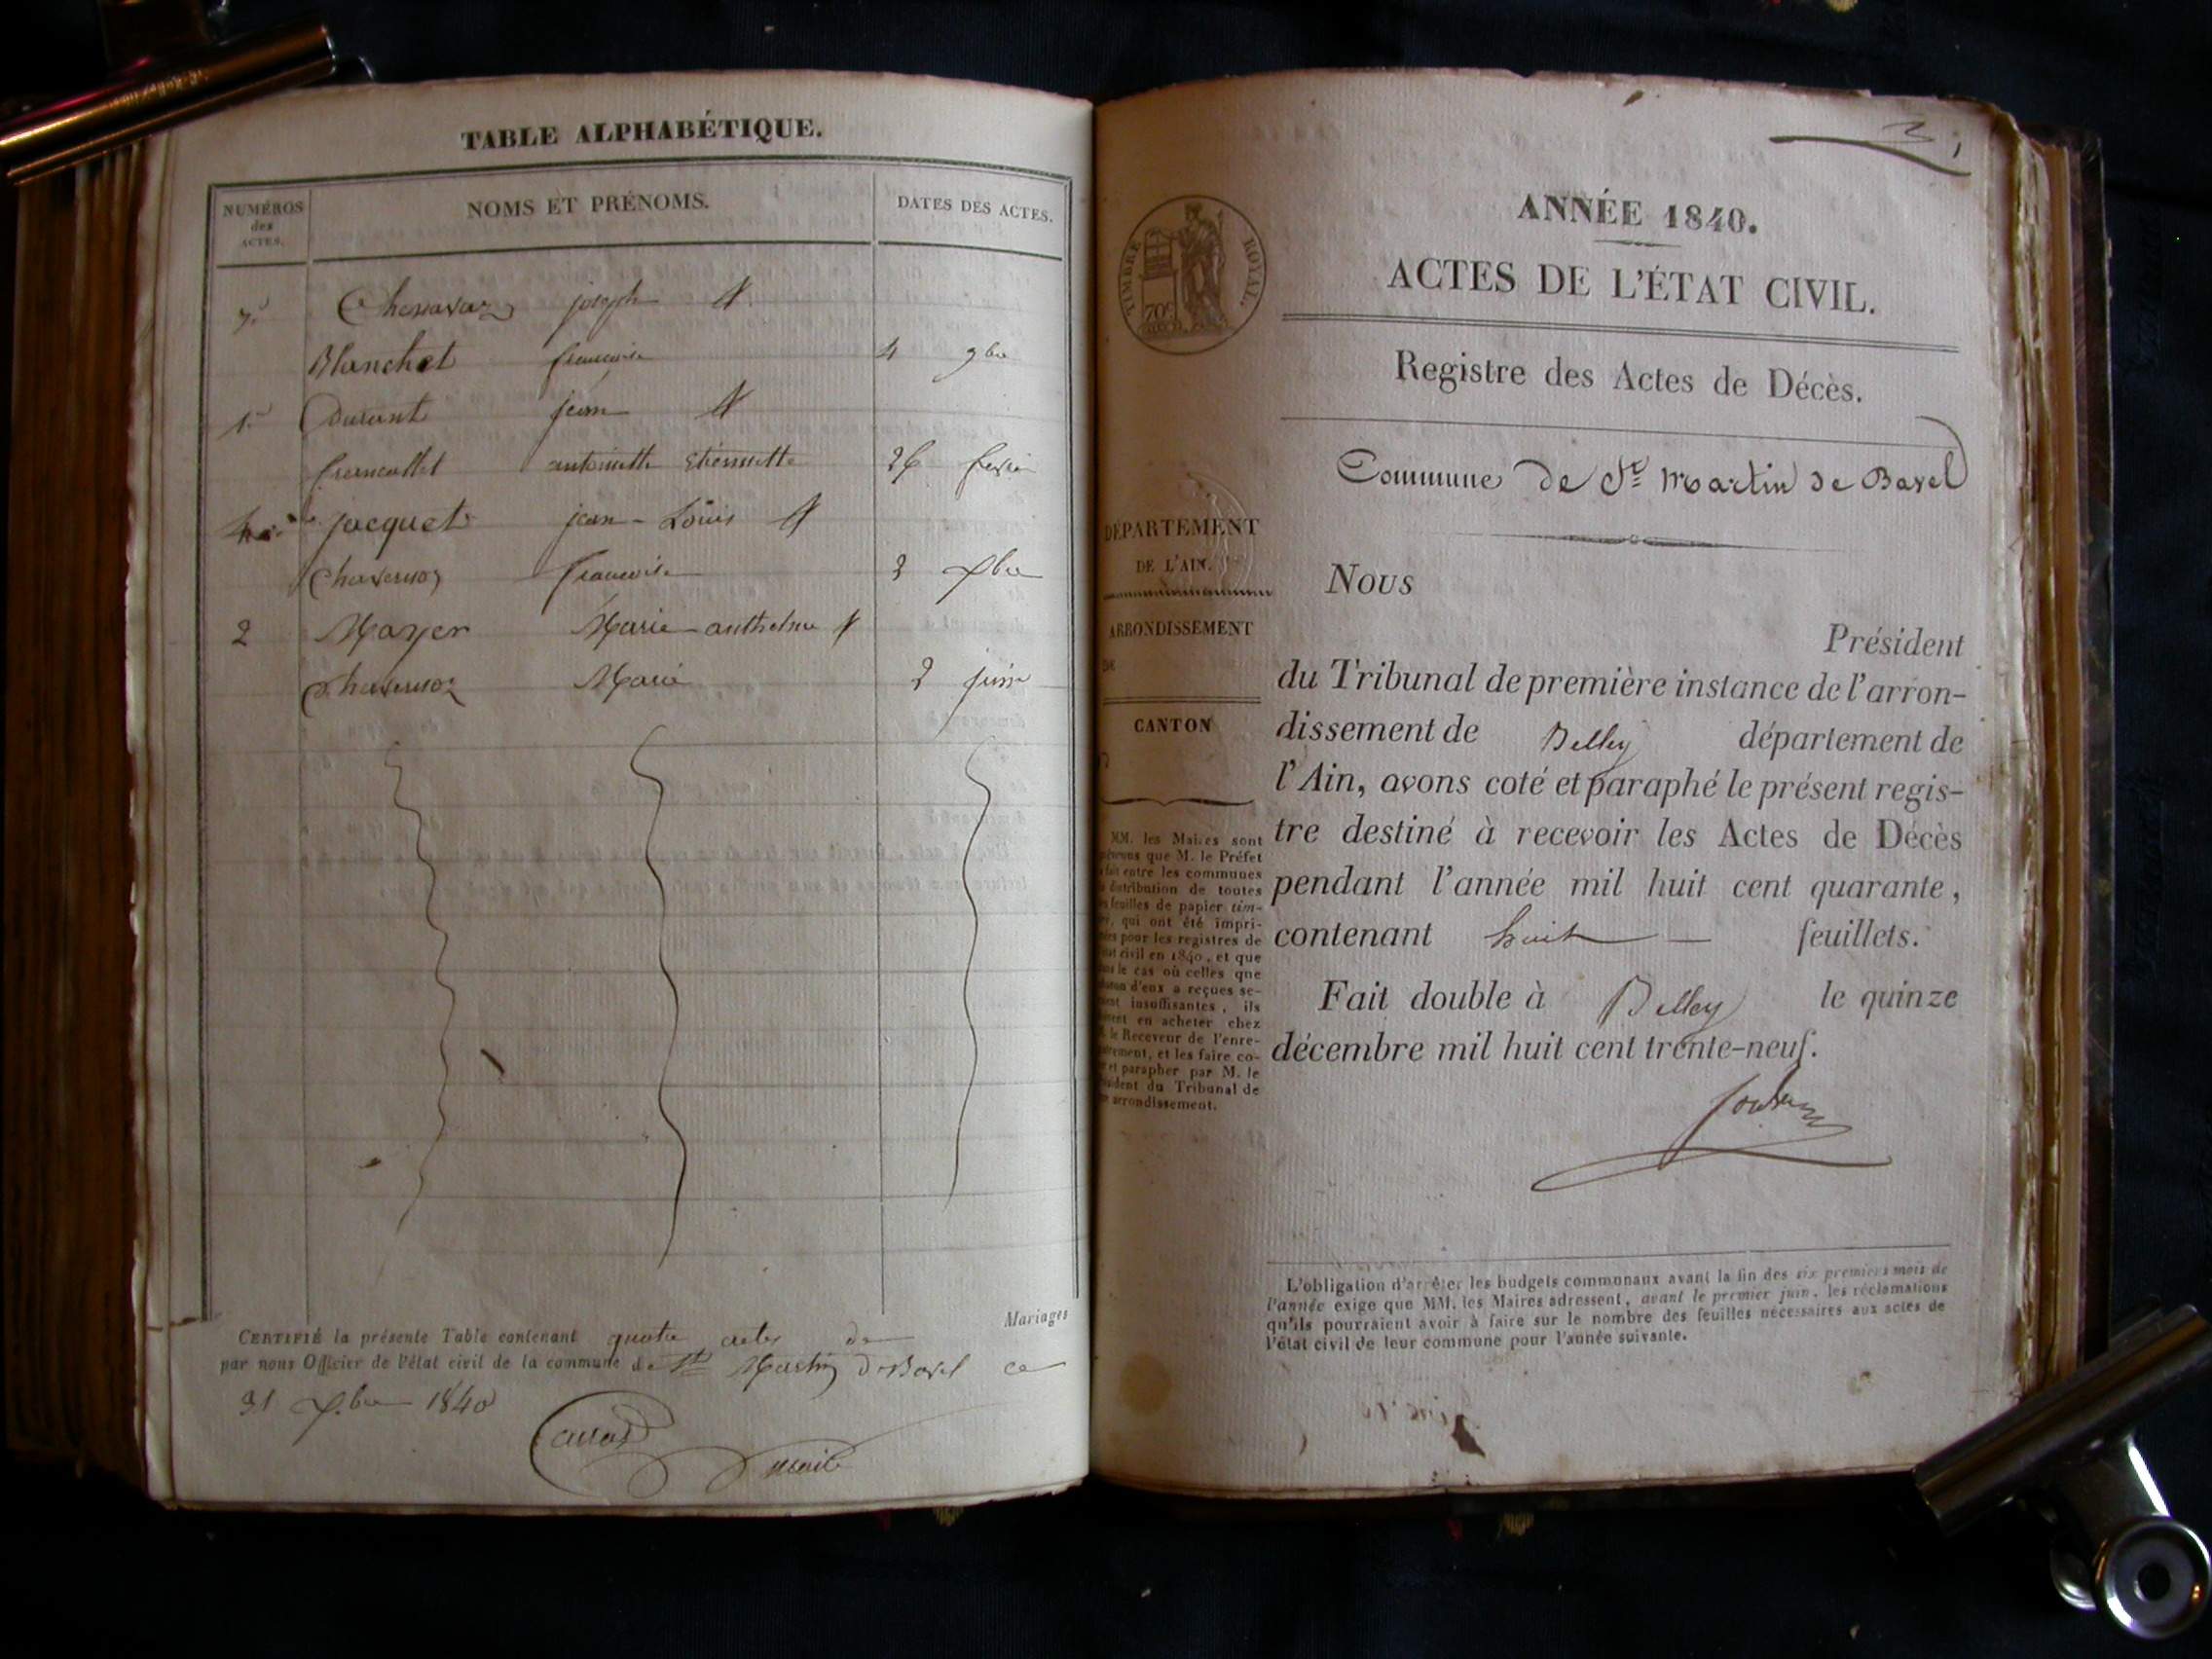 TABLE ALPHABÉTIQUE.
NUMÉROS des ACTES.
NOMS ET PRÉNOMS.
DATES DES ACTES.
joseph &
Blanchet françoise 4 9bre
1. Durant jean &
antoinette Etiennette 26
jacquet jean-Louis &
françoise 2 Xbre
2 Mayer Marie anthelme &
Marie 2 juin
Mariages
CERTIFIÉ la présente Table contenant quatre actes de
par nous Officier de l'état civil de la commune de St Martin de Bavel ce
31 Xbre 1840
maire
ANNÉE 1840.
TIMBRE ROYAL.
70c
ACTES DE L'ÉTAT CIVIL.
Registre des Actes de Décès.
Commune de St Martin de Bavel
DÉPARTEMENT
DE L'AIN.
ARRONDISSEMENT
DE
CANTON
MM. les Maires sont
que M. le Préfet
fait entre les communes
distribution de toutes
feuilles de papier tim-
qui ont été impri-
pour les registres de
civil en 1840, et que
le cas où celles que
d'eux a reçues se-
insuffisantes, ils
en acheter chez
le Receveur de l'enre-
et les faire co-
et parapher par M. le
du Tribunal de
arrondissement.
Nous
Président
du Tribunal de première instance de l'arron-
dissement de Belley département de
l'Ain, avons coté et paraphé le présent regis-
tre destiné à recevoir les Actes de Décès
pendant l'année mil huit cent quarante,
contenant huit feuillets.
Fait double à Belley le quinze
décembre mil huit cent trente-neuf.
L'obligation d'arrêter les budgets communaux avant la fin des six premiers mois de
l'année exige que MM. les Maires adressent, avant le premier juin, les réclamations
qu'ils pourraient avoir à faire sur le nombre des feuilles nécessaires aux actes de
l'état civil de leur commune pour l'année suivante.